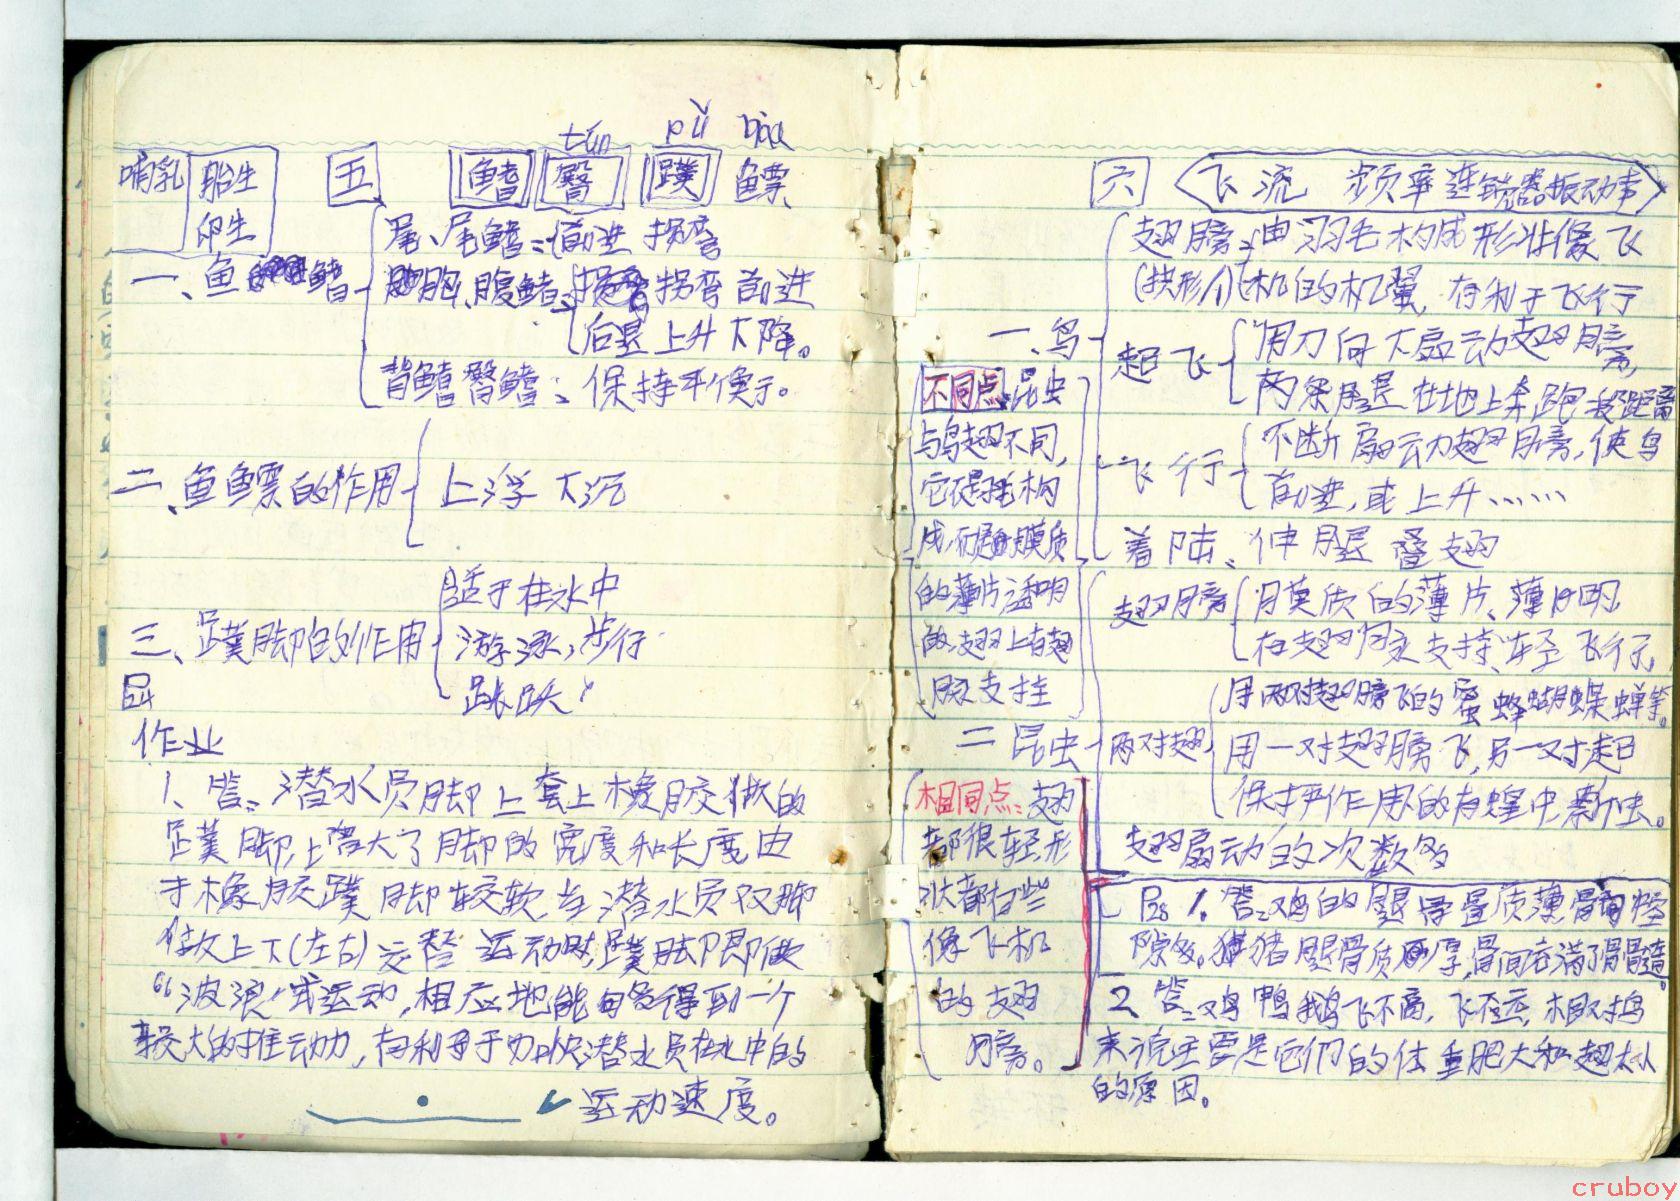 tún pǔ biào
哺乳 胎生 五 鳍 臀 蹼 鳔
卵生
尾、尾鳍：前进 拐弯
一、鱼 鳍 胸、腹鳍： 拐弯 前进
后退 上升 下降。
背鳍 臀鳍：保持平衡。
二、鱼鳔的作用 上浮 下沉
适于在水中
三、蹼脚的作用 游泳，步行
跳跃
作业
1、答：潜水员脚上套上橡胶做的
蹼脚，上 大了脚的宽度和长度由
于橡胶蹼脚较软当潜水员双脚
做上下(左右)交替运动时，蹼脚即做
“波浪”式运动，相应地能 得到一个
较大的推动力，有利于加快潜水员在水中的
运动速度。
六 飞 流 频率 连 振动
翅膀：由羽毛构成形状像飞
(拱形八) 机的机翼，有利于飞行
一、鸟
起飞 用力向下扇动翅膀，
两条腿在地上奔跑 距离
飞行 不断扇动翅膀，使鸟
前进，或上升……
着陆、伸腿 叠翅
不同点：昆虫
与鸟翅不同，
它不是羽毛构
成，而是由膜质
的薄片透明
的，翅上有翅
脉支持
二 昆虫
翅膀 膜质的薄片、薄
在翅 支持、轻 飞行，
两对翅 用两对翅膀飞的蜜蜂蝴蝶蝉等。
用一对翅膀飞，另一对起
保护作用的有蝗虫 虫。
翅扇动的次数多
相同点：翅
都很轻形
状都有些
像飞机
的翅
膀。
P28 1、答：鸡的腿骨骨质薄，骨间空
隙多。猪腿骨质厚，骨间充满了骨髓。
2、答：鸡鸭鹅飞不高，飞不远，相对鸟
来说主要是它们的体重肥大和翅太小
的原因。
cruboy